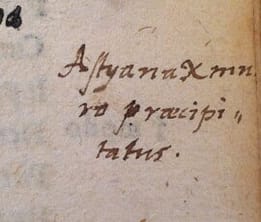 Astyanax mu
ro præcipi„
tatus.